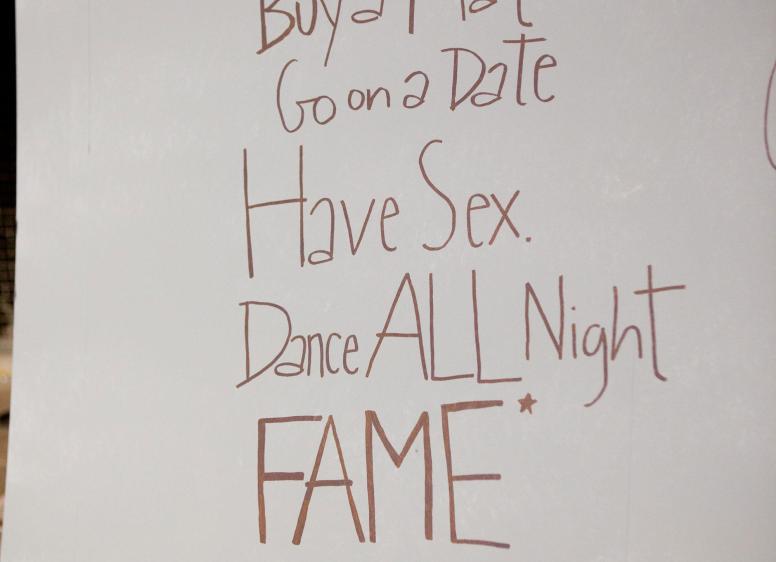 Buy a
Go on a Date
Have Sex.
Dance ALL Night
FAME*